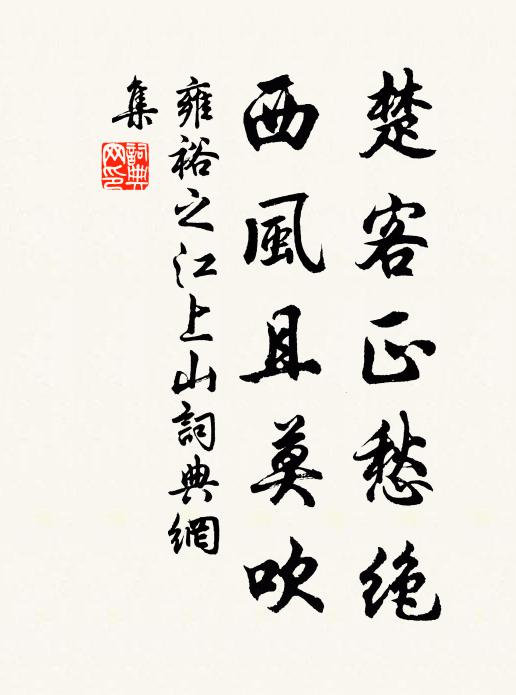 楚客正愁絶
西風且莫吹
雍裕之江上山詞典網
集
詞典
网印